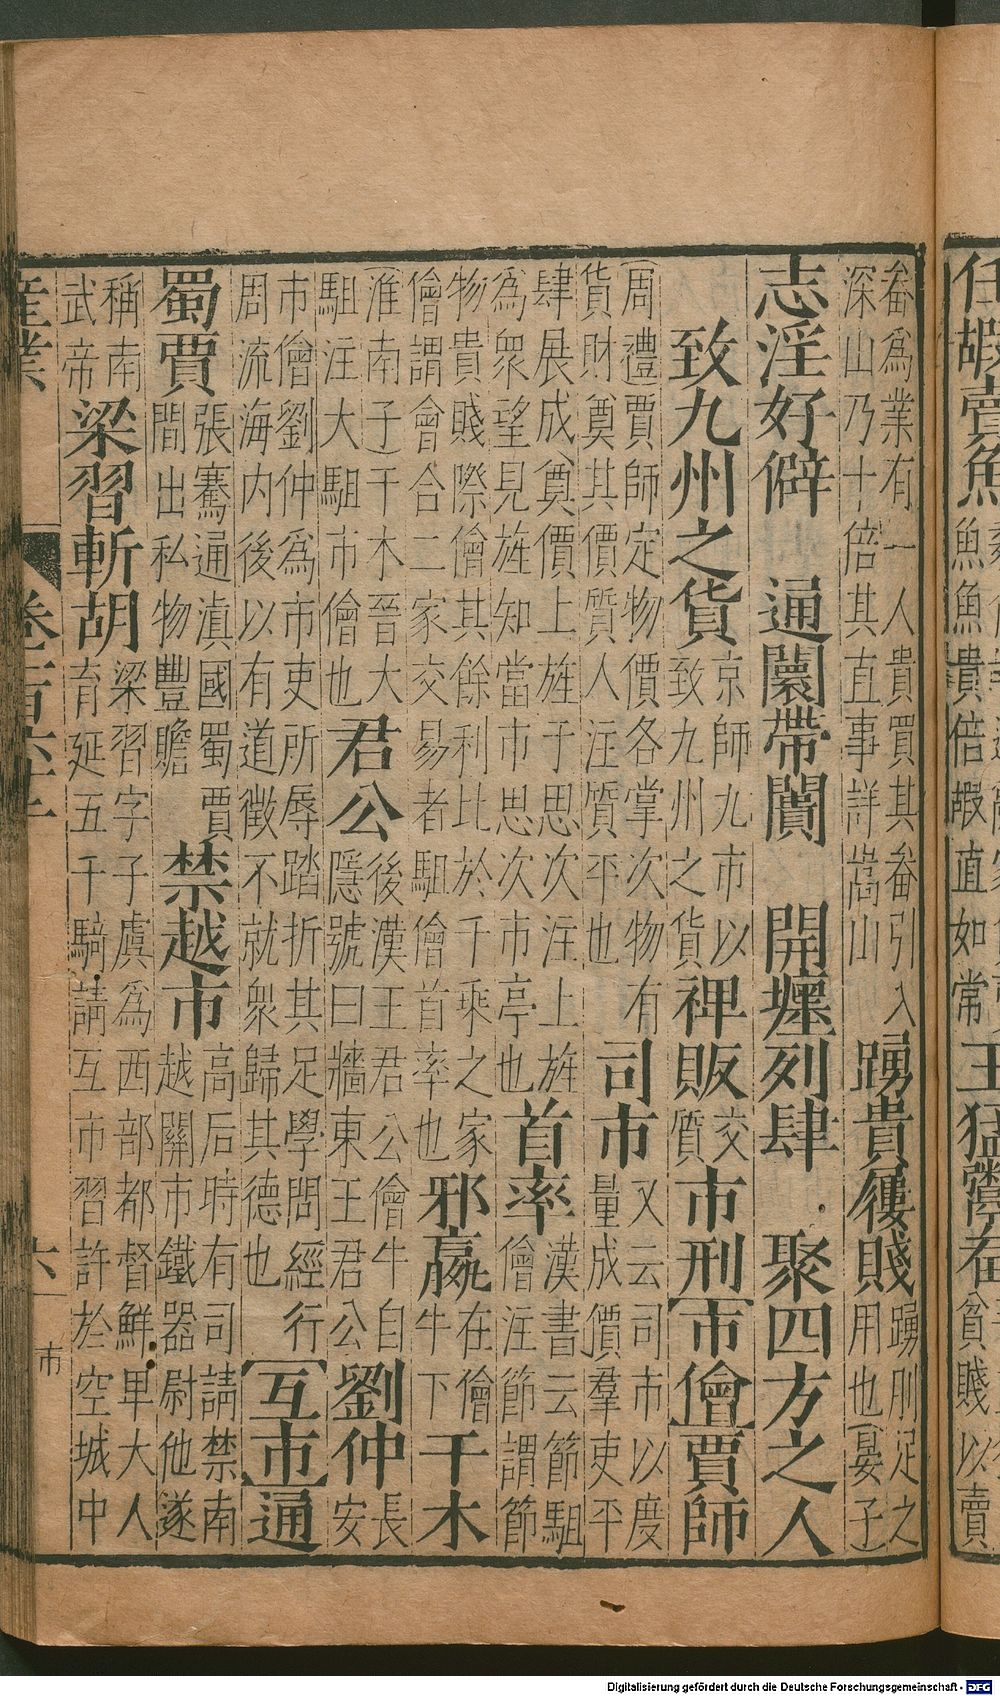 任嘏賣魚
魚魚貴倍嘏直如常
王猛鬻畚
貧賤以賣
畚爲業有一人貴買其畚引入
深山乃十倍其直事詳嵩山
踴貴屨賤
踴刖足之
用也(晏子)
志淫好僻　通闤帶闠　開壥列肆　聚四方之人
致九州之貨
京師九市以
致九州之貨
裨販
交
質
市刑[市儈]賈師
(周禮)賈師定物價各掌次物有
貨財奠其價質人注質平也
司市
又云司市以度
量成價羣吏平
肆展成奠價上旌于思次注上旌
爲衆望見旌知當市思次市亭也
首率
漢書云節駔
儈注節謂節
物貴賤際儈其餘利比於千乘之家
儈謂會合二家交易者駔儈首率也
邪嬴
在儈
牛下
干木
(淮南子)干木晉大
駔注大駔市儈也
君公
後漢王君公儈牛自
隱號曰牆東王君公
劉仲
長
安
市儈劉仲爲市吏所辱踏折其足學問經行
周流海内後以有道徵不就衆歸其德也
[互市]通
蜀賈
張騫通滇國蜀賈
間出私物豐贍
禁越市
高后時有司請禁南
越關市鐵器尉他遂
稱南
武帝
梁習斬胡
梁習字子虞爲西部都督鮮卑大人
育延五千騎請互市習許於空城中
產業
六
市
Digitalisierung gefördert durch die Deutsche Forschungsgemeinschaft - DFG